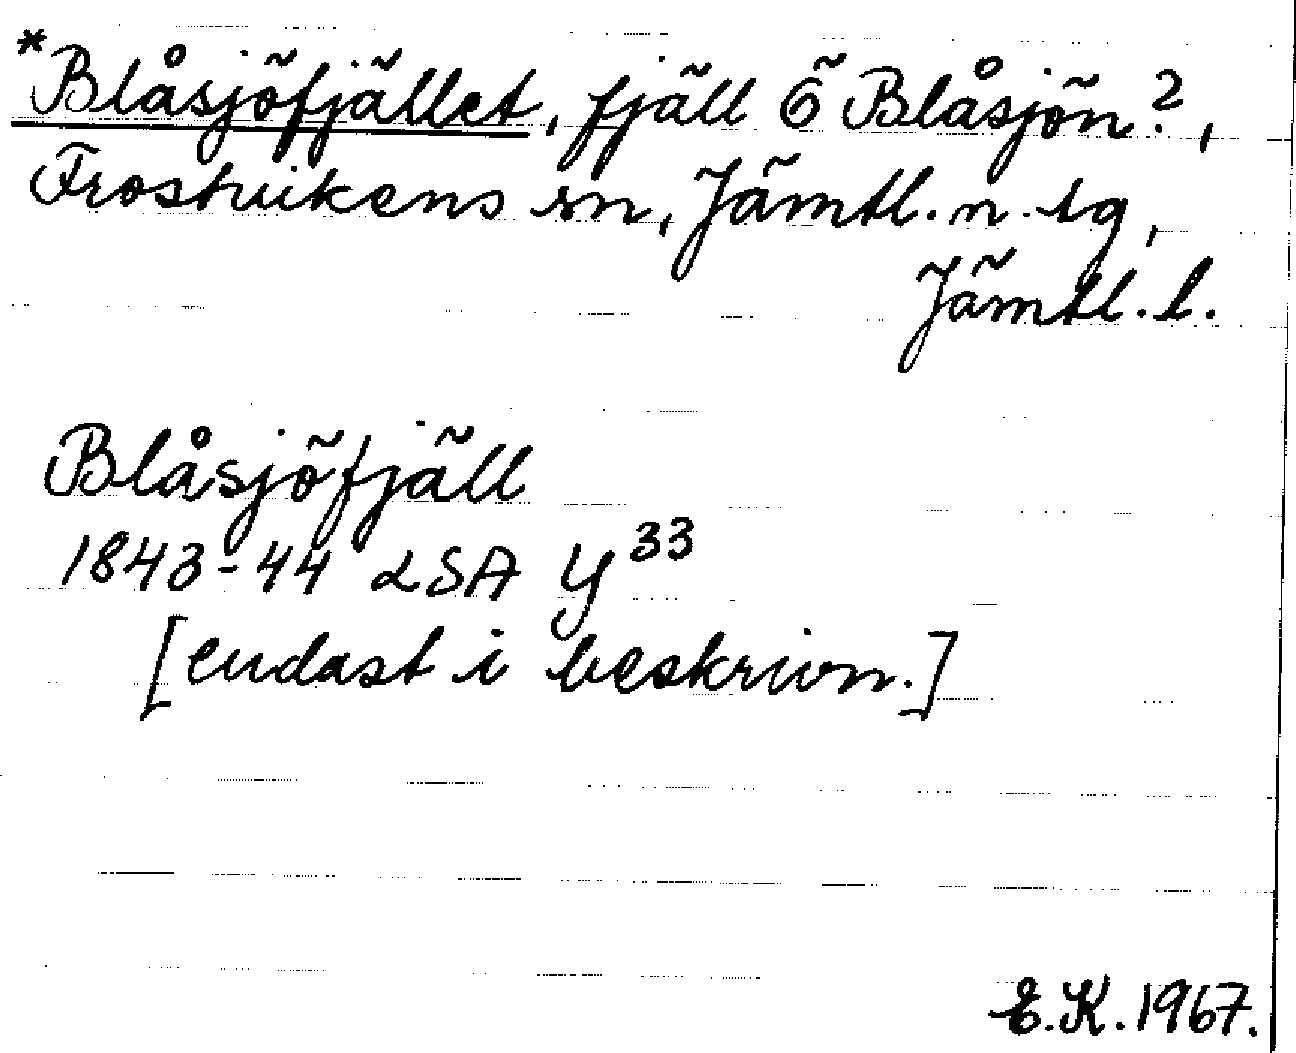 *Blåsjöfjället, fjäll Ö Blåsjön?,
Frostvikens sn, Jämtl. n. tg,
Jämtl. l.
Blåsjöfjäll
1843-44 LSA Y³³
[endast i beskrivn.]
E.K. 1967.